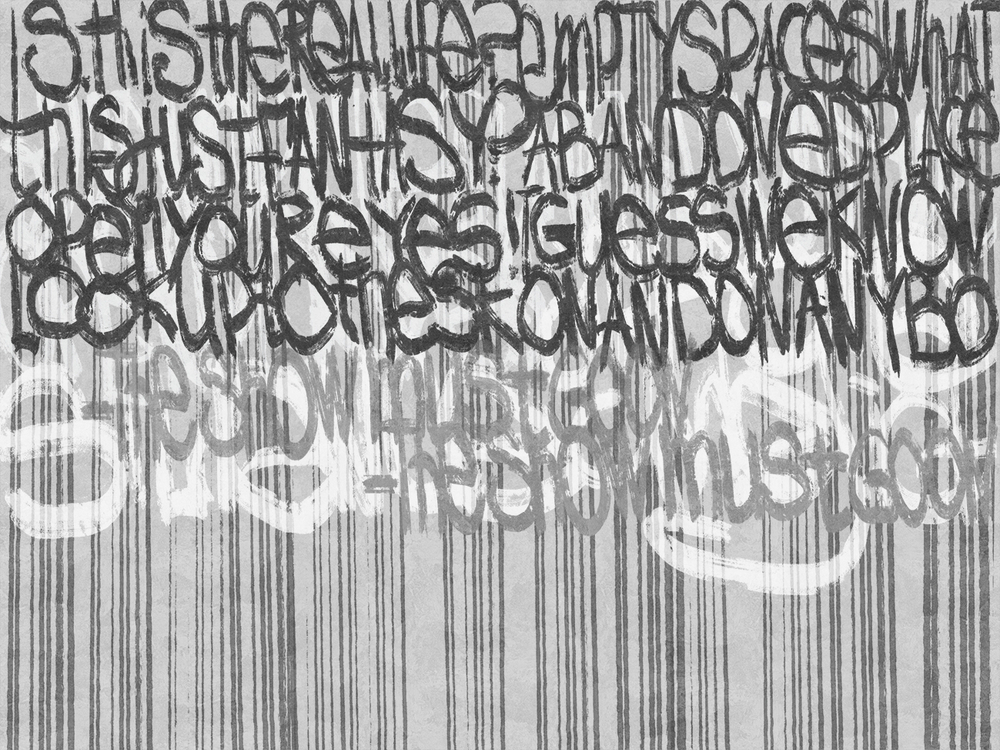 S tHiS tHE REAL LIFE? EMPTY SPACES WHAT
THIS JUST FANTASY? ABANDONED PLACE
OPEN YOUR EYES I GUESS WE KNOW
LOOK UP tO tHE SK ON AND ON ANYBO
tHE SHOW MUSt GO ON
tHE SHOW MUSt GO ON